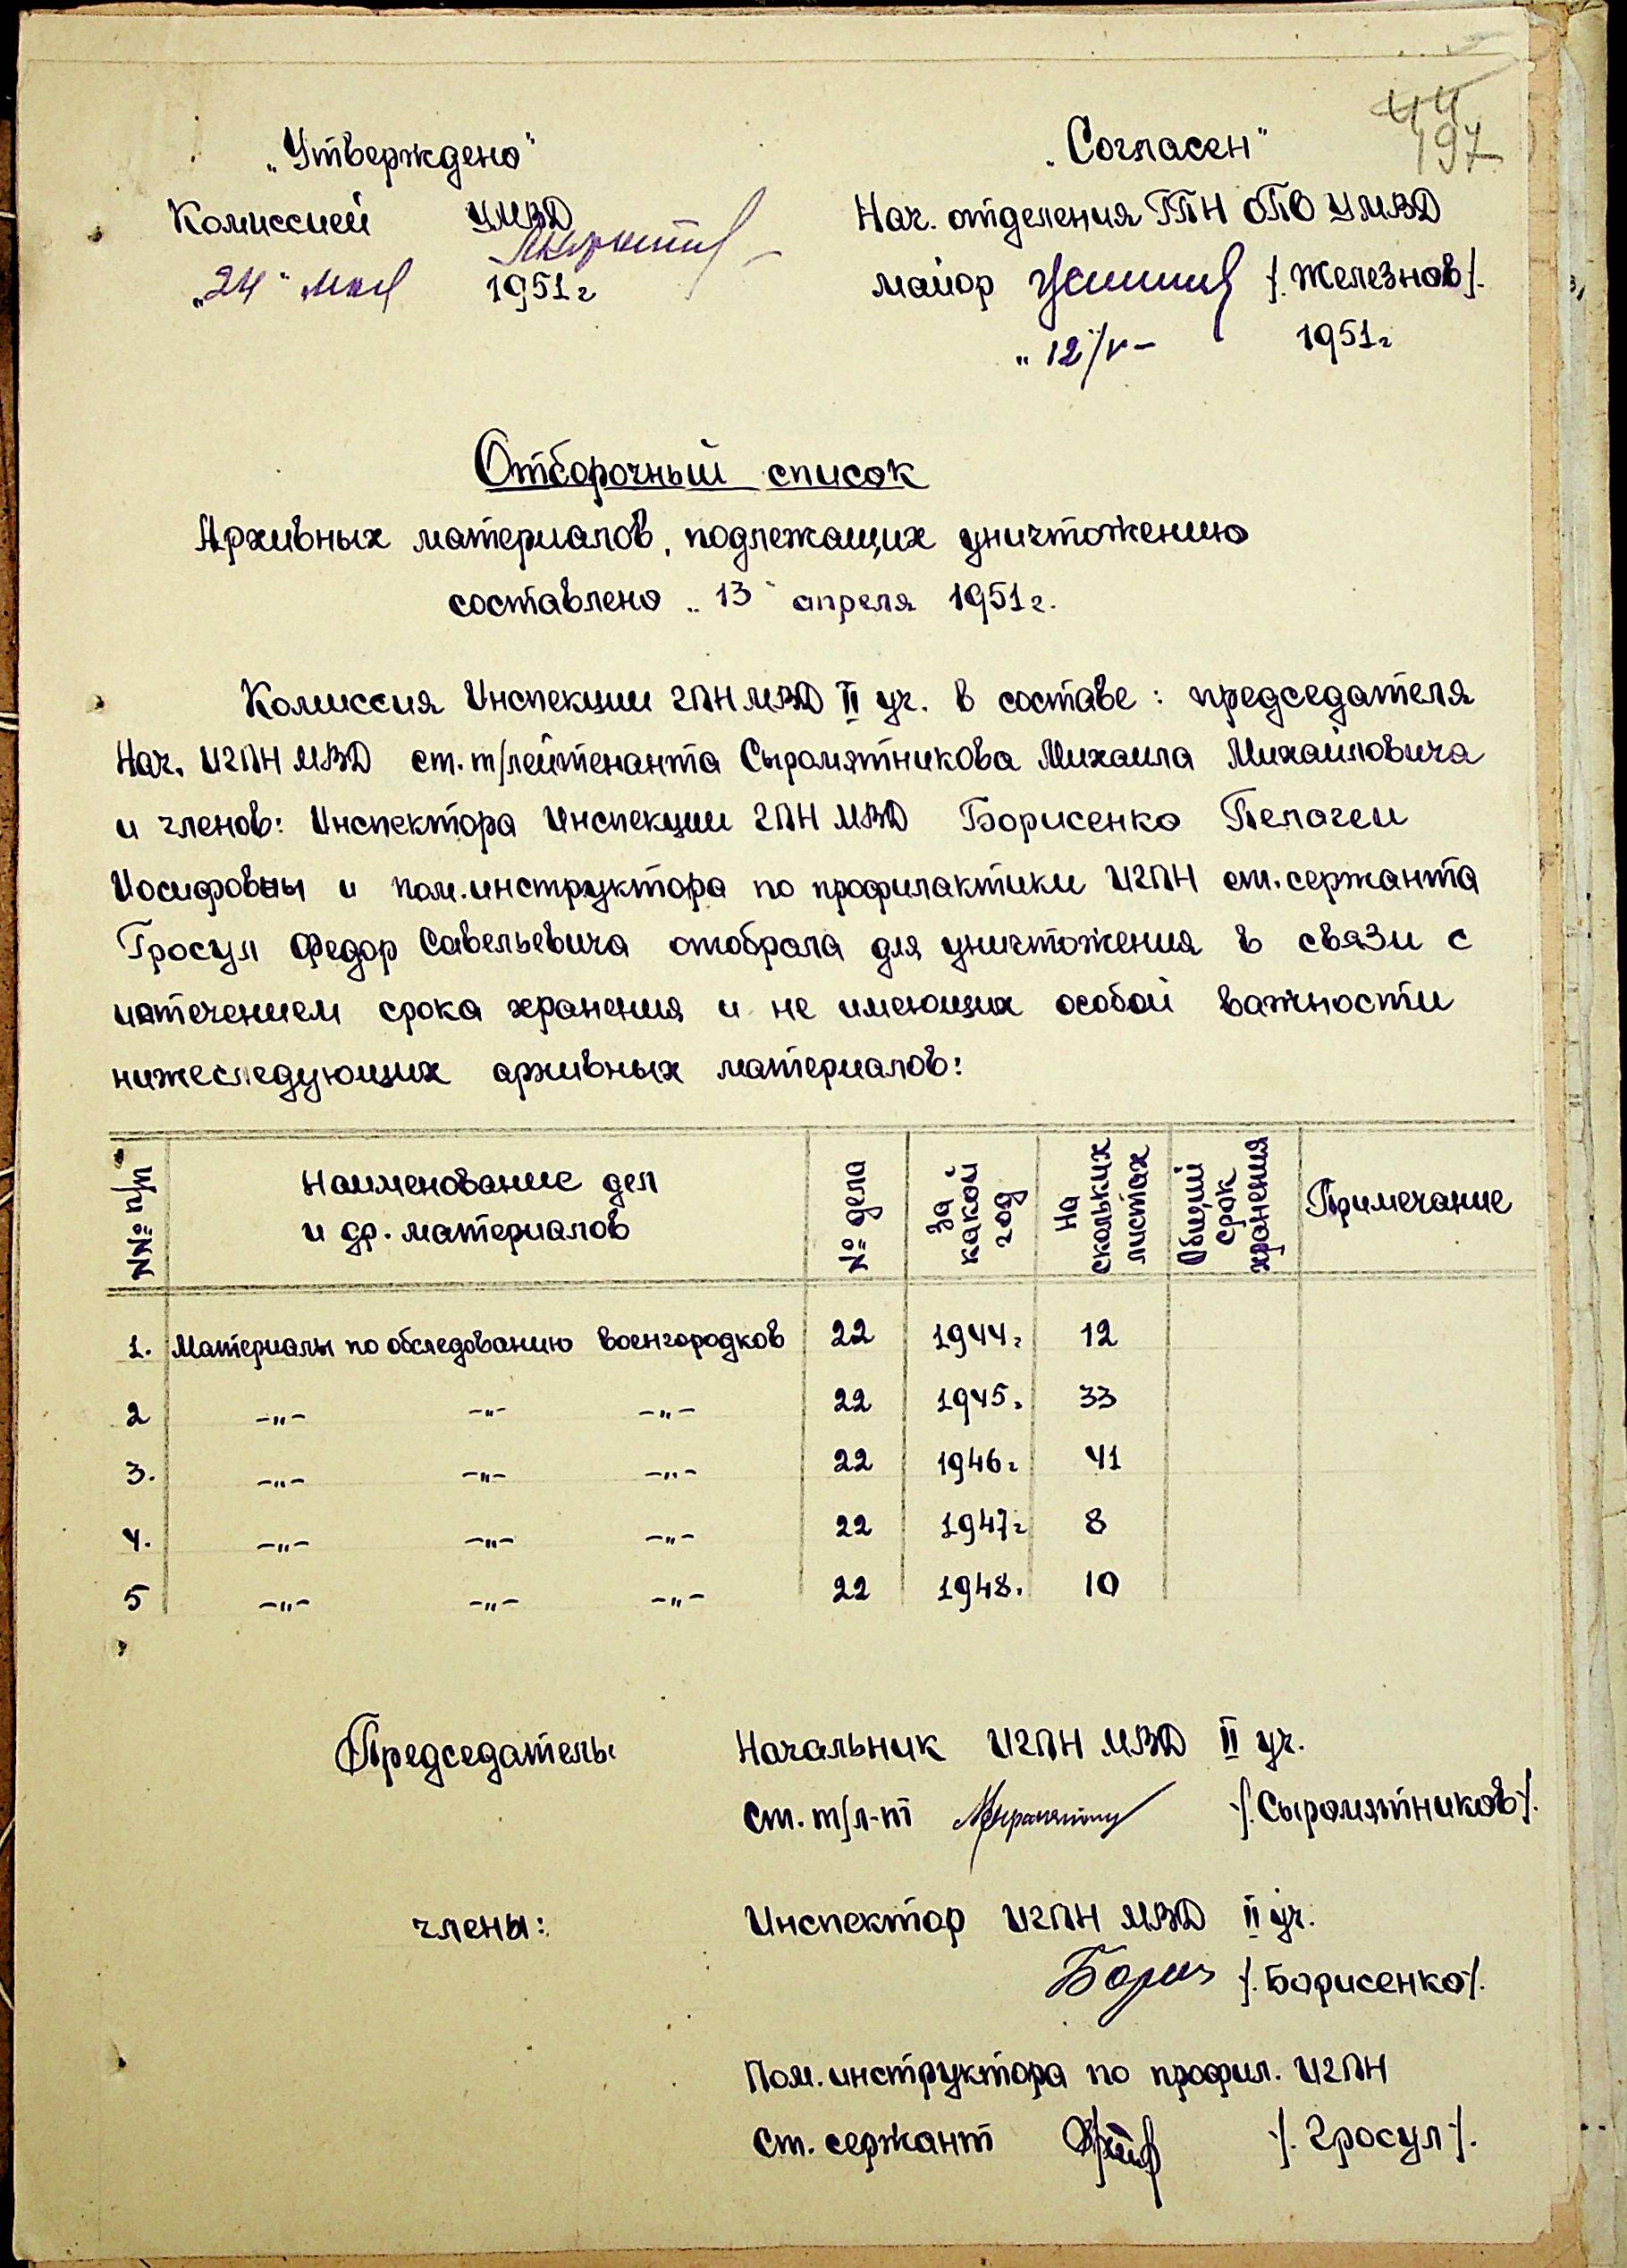 44
197
„Утверждено"
Комиссией УМВД
„24" мая 1951г
„Согласен"
Нач. отделения ГПН ОПО УМВД
майор /.Железнов/.
„12"/V- 1951г
Отборочный список
Архивных материалов, подлежащих уничтожению
составлено „13" апреля 1951г.
Комиссия Инспекции ГПН МВД II уч. в составе: председателя
Нач. ИГПН МВД ст. т/лейтенанта Сыромятникова Михаила Михайловича
и членов: Инспектора Инспекции ГПН МВД Борисенко Пелагеи
Иосифовны и пом.инструктора по профилактики ИГПН ст.сержанта
Гросул Федор Савельевича отобрала для уничтожения в связи с
истечением срока хранения и не имеющих особой важности
нижеследующих архивных материалов:
NN№ п/п Наименование дел и др. материалов № дела За какой год На скольких листах Общий срок хранения Примечание
1. Материалы по обследованию военгородков 22 1944г 12
2 -„- -„- -„- 22 1945г 33
3. -„- -„- -„- 22 1946г 41
4. -„- -„- -„- 22 1947г 8
5 -„- -„- -„- 22 1948. 10
Председатель: Начальник ИГПН МВД II уч.
ст. т/л-т /.Сыромятников/.
члены: Инспектор ИГПН МВД II уч.
/.Борисенко/.
Пом. инструктора по профил. ИГПН
ст. сержант /.Гросул/.